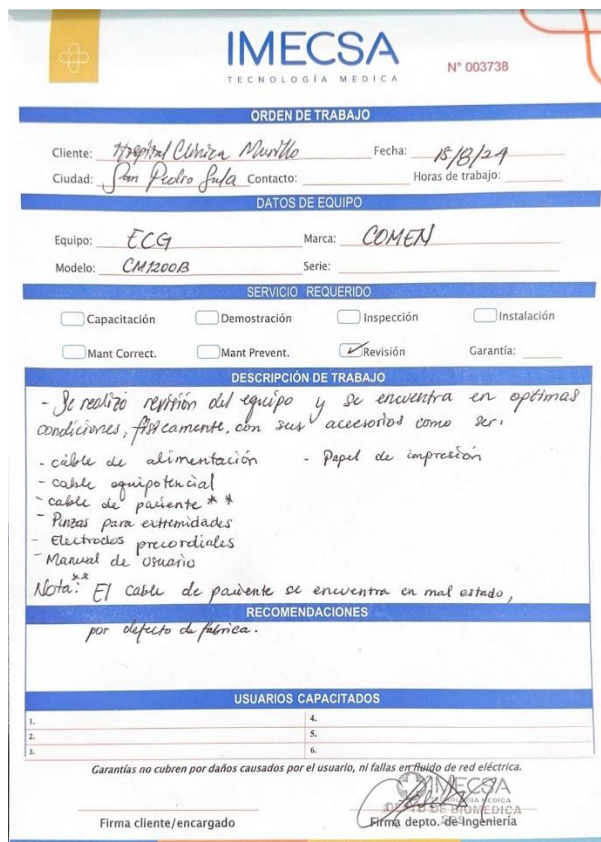 IMECSA
TECNOLOGÍA MEDICA
N° 003738
ORDEN DE TRABAJO
Cliente: Hospital Clínica Murillo Fecha: 15/8/24
Ciudad: San Pedro Sula Contacto: Horas de trabajo:
DATOS DE EQUIPO
Equipo: ECG Marca: COMEN
Modelo: CM1200B Serie:
SERVICIO REQUERIDO
Capacitación Demostración Inspección Instalación
Mant Correct. Mant Prevent. Revisión Garantía:
DESCRIPCIÓN DE TRABAJO
- Se realizo revisión del equipo y se encuentra en optimas
condiciones, físicamente, con sus accesorios como ser:
- cable de alimentación - Papel de impresión
- cable equipotencial
- cable de paciente **
- Pinzas para extremidades
- Electrodos precordiales
- Manual de usuario
Nota:** El cable de paciente se encuentra en mal estado,
RECOMENDACIONES
por defecto de fabrica.
USUARIOS CAPACITADOS
1. 4.
2. 5.
3. 6.
Garantías no cubren por daños causados por el usuario, ni fallas en fluido de red eléctrica.
IMECSA
TECNOLOGÍA MEDICA
BIOMEDICA
SPS
Firma cliente/encargado Firma depto. de Ingeniería